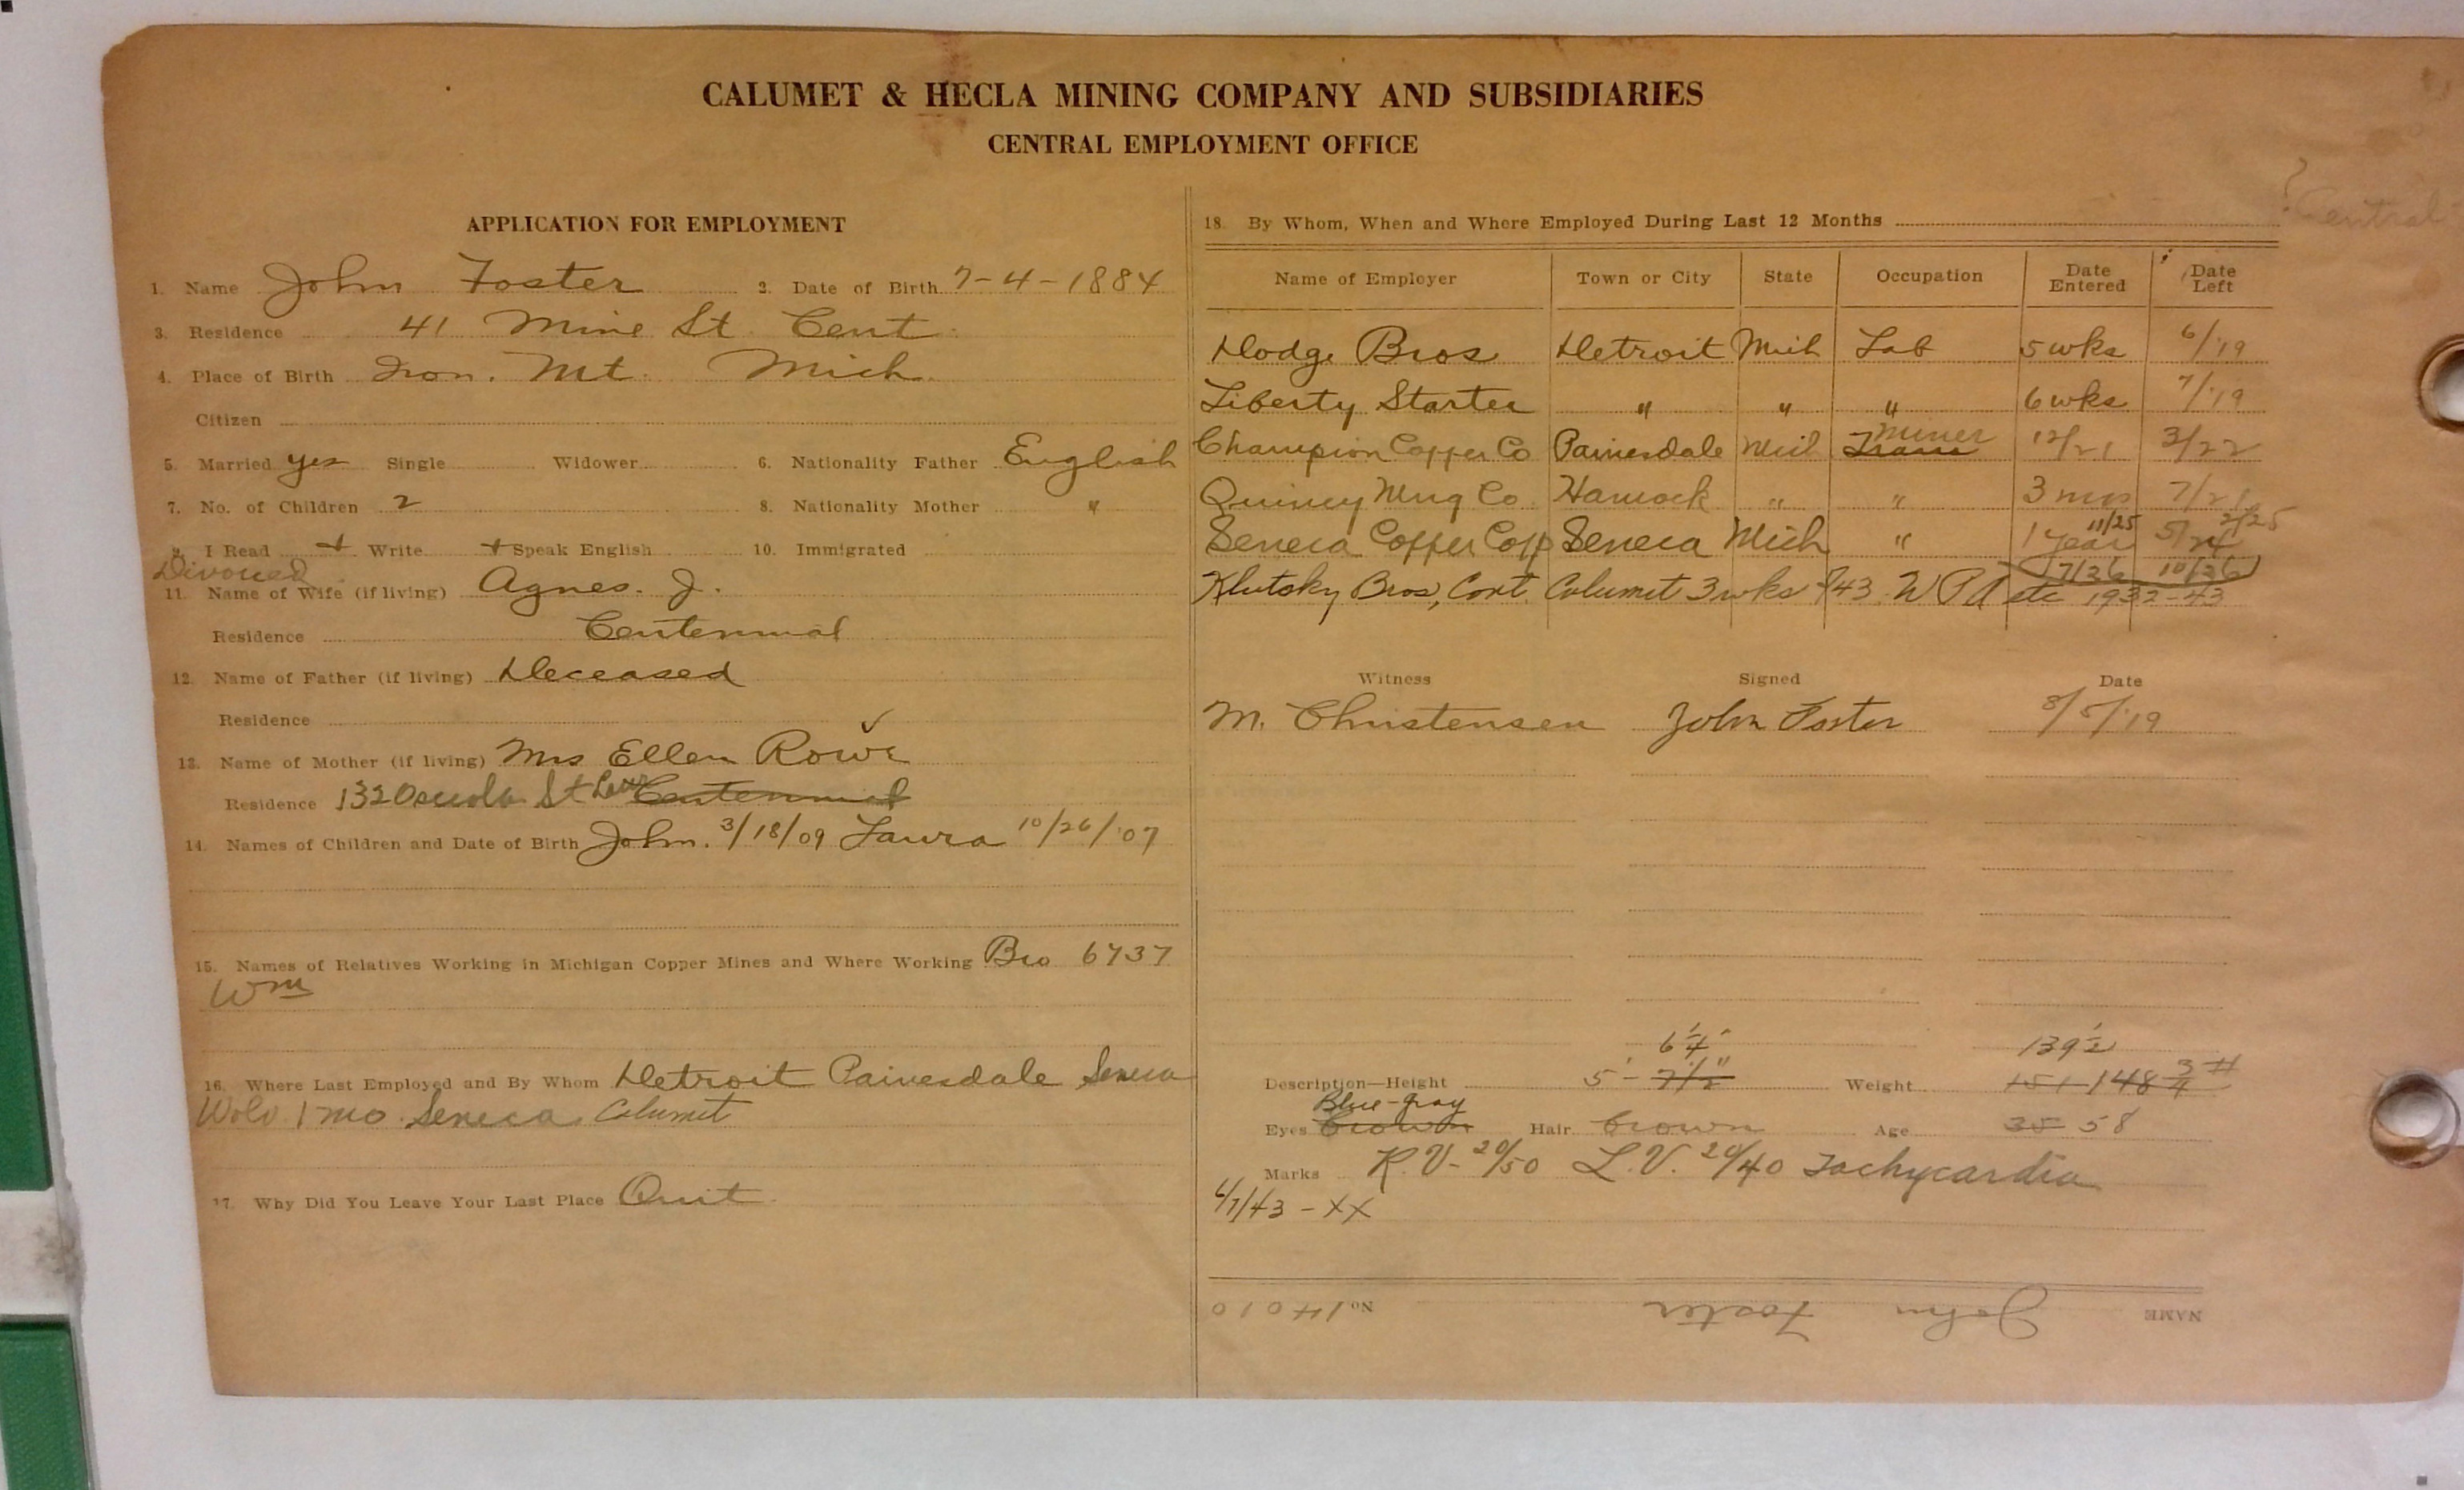 CALUMET & HECLA MINING COMPANY AND SUBSIDIARIES
CENTRAL EMPLOYMENT OFFICE
APPLICATION FOR EMPLOYMENT
1. Name John Foster 2. Date of Birth 7-4-1884
3. Residence 41 Mine St. Cent
4. Place of Birth Iron. Mt. Mich.
Citizen
5. Married yes Single Widower 6. Nationality Father English
7. No. of Children 2 8. Nationality Mother "
9. I Read + Write + Speak English 10. Immigrated
Divorced
11. Name of Wife (if living) Agnes. J.
Residence Centennial
12. Name of Father (if living) Deceased
Residence
13. Name of Mother (if living) Mrs Ellen Rowe
Residence 132 Osceola St Laur Centennial
14. Names of Children and Date of Birth John. 3/18/09 Laura 10/26/'07
15. Names of Relatives Working in Michigan Copper Mines and Where Working Bro 6737
Wm
16. Where Last Employed and By Whom Detroit Painesdale Seneca
Wolv. 1 mo. Seneca Calumet
17. Why Did You Leave Your Last Place Quit
? Central
18. By Whom, When and Where Employed During Last 12 Months
Name of Employer Town or City State Occupation Date Entered Date Left
Dodge Bros Detroit Mich Lab 5 wks 6/'19
Liberty Starter " " " 6 wks 7/'19
Miner
Champion Copper Co Painesdale Mich Tram 12/21 3/22
Quincy Mng Co Hancock " " 3 mos 7/21
11/25 2/25
Seneca Copper Corp Seneca Mich " 1 year 5/24
7/26 10/26
Klutsky Bros, Cont. Calumet 3 wks 43. WPA etc 1932-43
Witness Signed Date
M. Christensen John Foster 8/5/'19
6 1/4" 139 1/2
Description—Height 5'- 7 1/2" Weight 151 148 3/4 #
Blue-gray
Eyes Brown Hair brown Age 35 58
Marks R.V- 20/50 L.V. 20/40 Tachycardia
6/7/43 - XX
NAME John Foster No. 14010